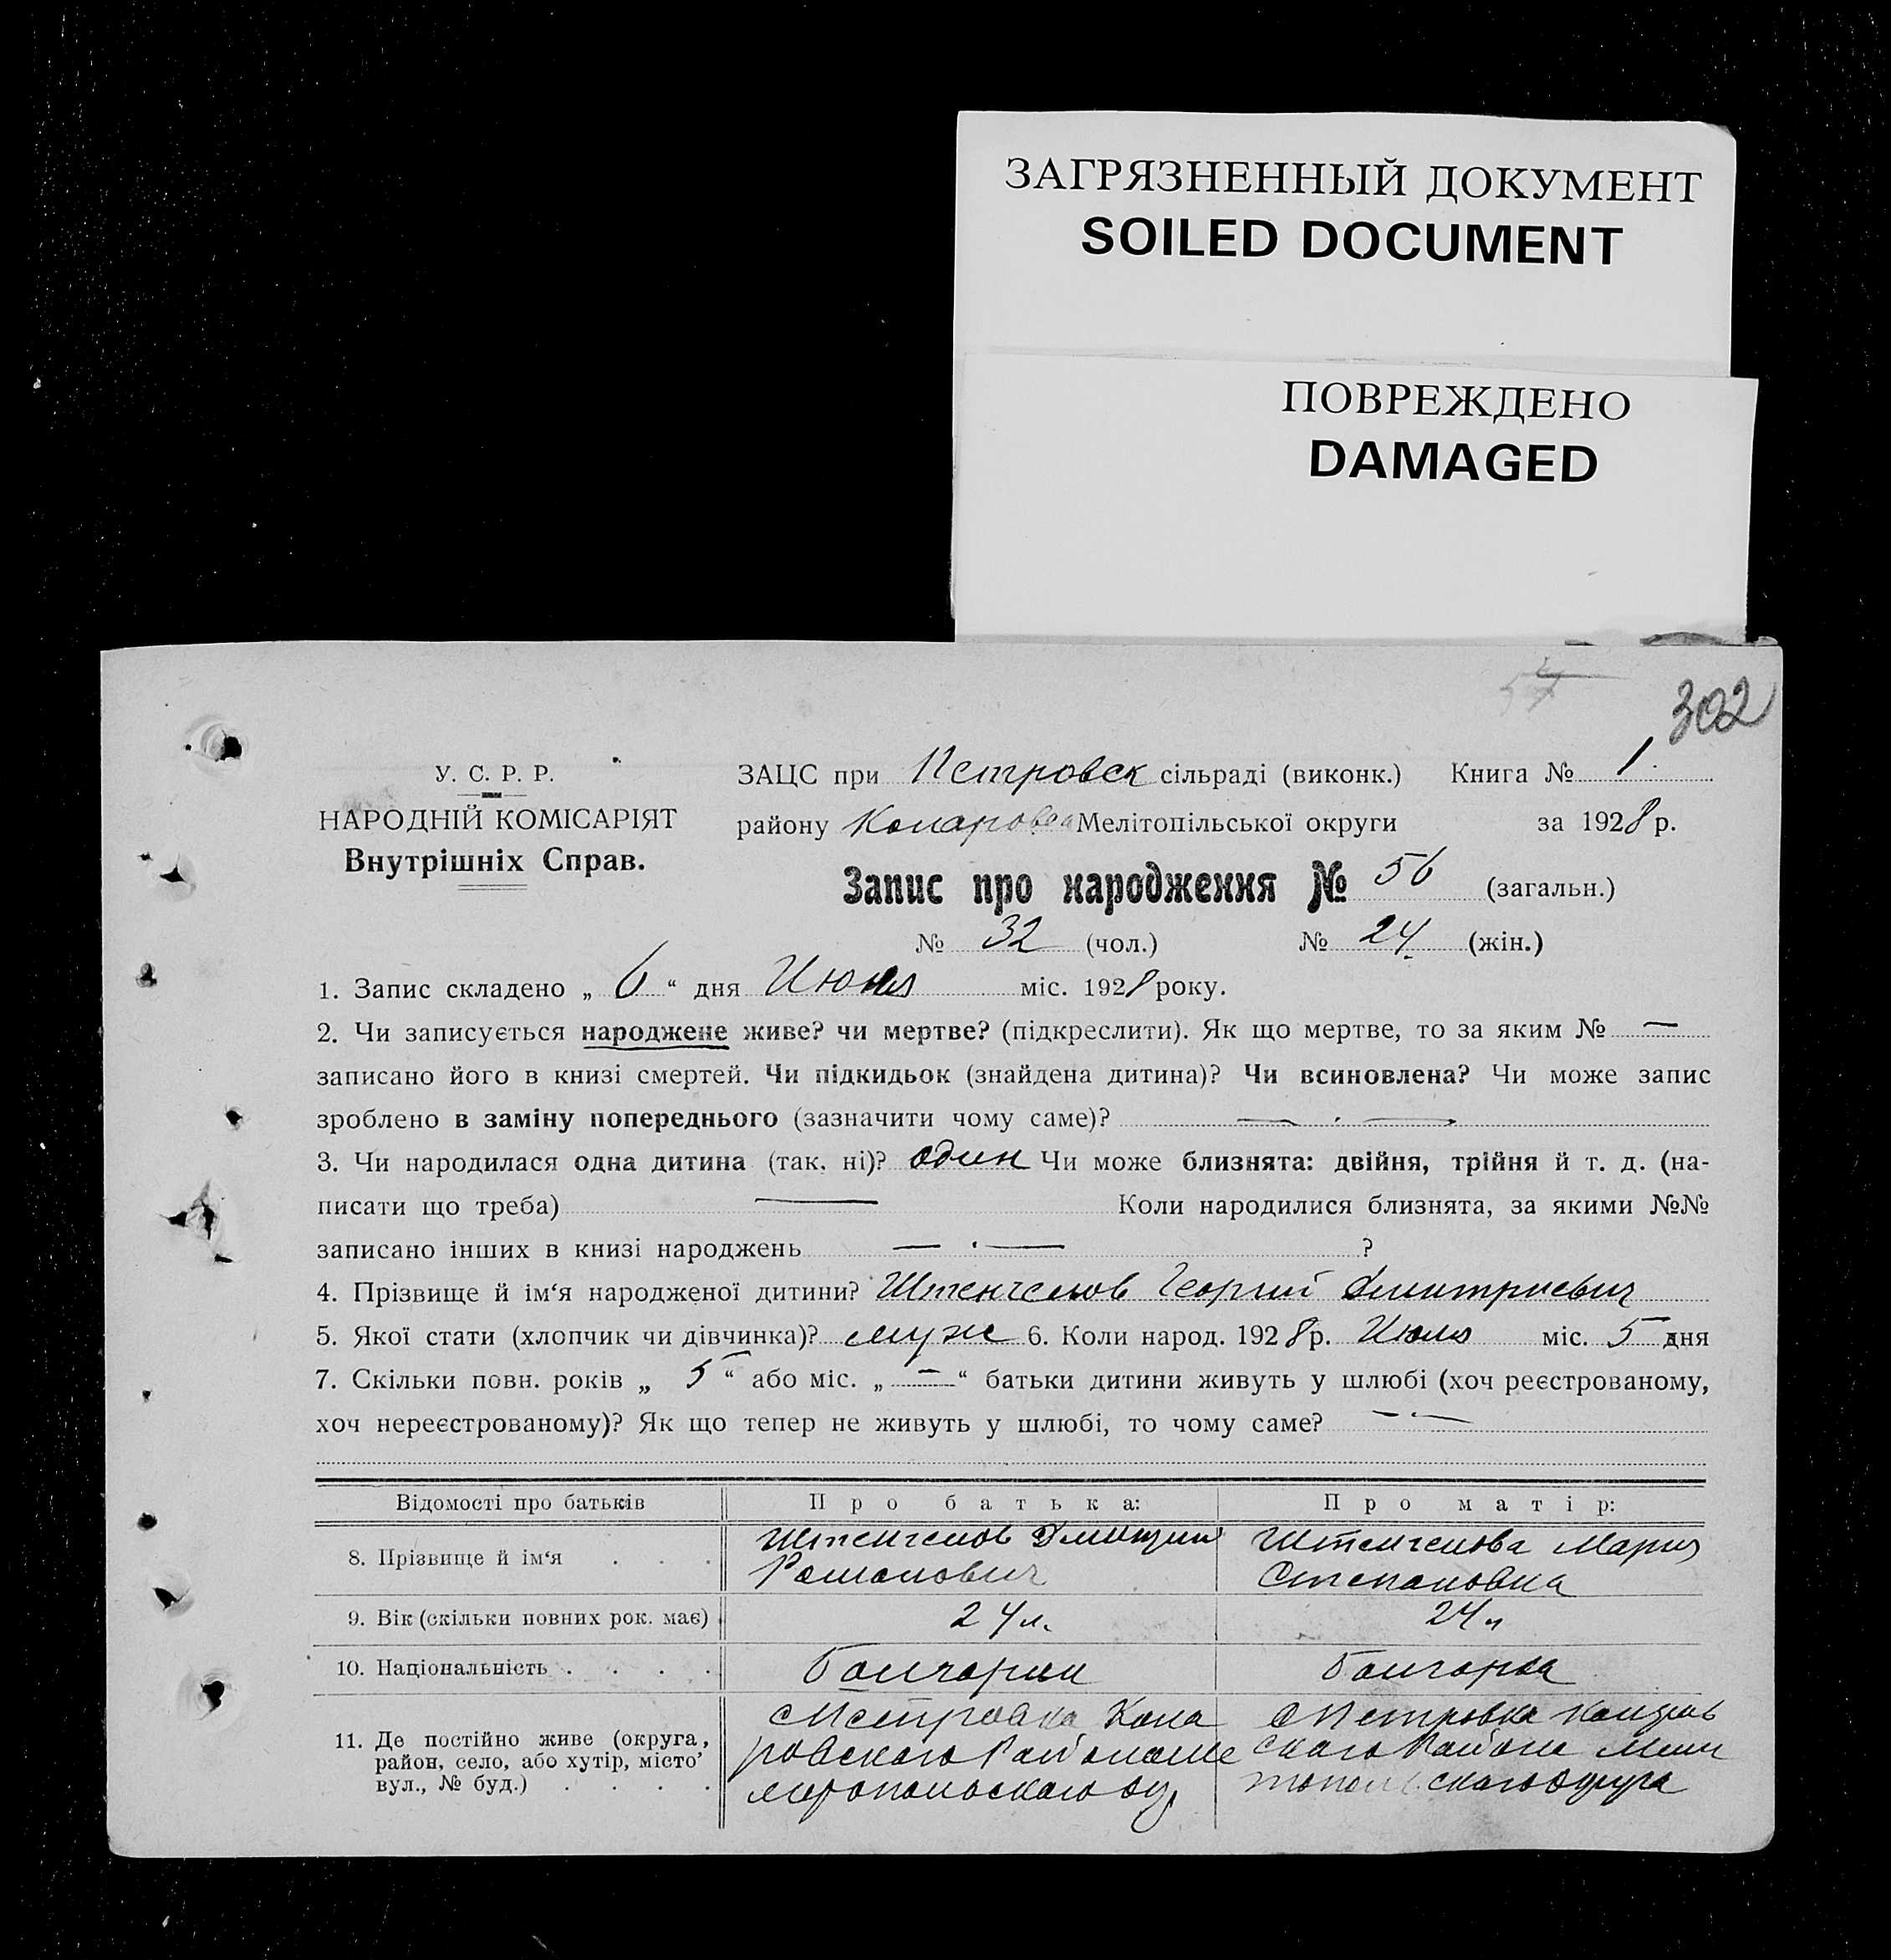 ЗАГРЯЗНЕННЫЙ ДОКУМЕНТ
SOILED DOCUMENT
ПОВРЕЖДЕНО
DAMAGED
302
У. С. Р. Р.
НАРОДНІЙ КОМІСАРІЯТ
Внутрішніх Справ.
ЗАЦС при Петровск сільраді (виконк.) Книга № 1.
району Коларовск Мелітопільської округи за 1928 р.
Запис про народження № 56 (загальн.)
№ 32 (чол.) № 24 (жін.)
1. Запис складено „ 6 “ дня Июля міс. 1928 року.
2. Чи записується народжене живе? чи мертве? (підкреслити). Як що мертве, то за яким № —
записано його в книзі смертей. Чи підкидьок (знайдена дитина)? Чи всиновлена? Чи може запис
зроблено в заміну попереднього (зазначити чому саме)? — . —
3. Чи народилася одна дитина (так, ні)? один Чи може близнята: двійня, трійня й т. д. (на-
писати що треба) — Коли народилися близнята, за якими №№
записано інших в книзі народжень — . — ?
4. Прізвище й ім‘я народженої дитини? Штенгелов Георгий Дмитриевич
5. Якої стати (хлопчик чи дівчинка)? муж 6. Коли народ. 1928 р. Июля міс. 5 дня
7. Скільки повн. років „ 5 “ або міс. „ — “ батьки дитини живуть у шлюбі (хоч реєстрованому,
хоч нереєстрованому)? Як що тепер не живуть у шлюбі, то чому саме? — . —
Відомості про батьків Про батька: Про матір:
8. Прізвище й ім‘я . . . Штенгелов Дмитрий Штенгелова Мария
Романович Степановна
9. Вік (скільки повних рок. має) 24 л. 24 л
10. Національність . . . . Болгарин Болгарка
11. Де постійно живе (округа,
район, село, або хутір, місто
вул., № буд.) . . . .
с Петровка Кола
ровского Района Ме
литопольского ок,
с Петровка Коларов
ского Района Мели
топольского округа